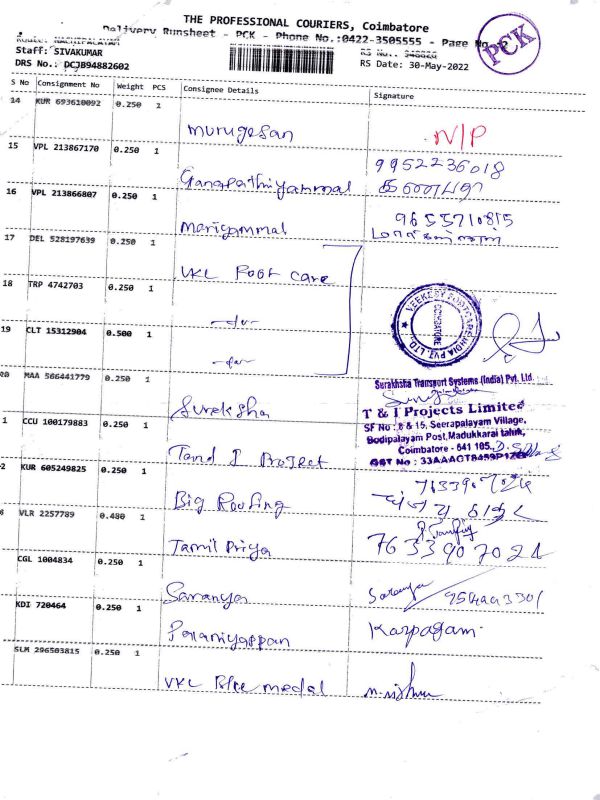 THE PROFESSIONAL COURIERS, Coimbatore
Delivery Runsheet - PCK - Phone No.:0422-3505555 - Page No.
PCK
Staff: SIVAKUMAR
DRS No.: DCJB94882602
RS Date: 30-May-2022
S No Consignment No Weight PCS Consignee Details Signature
14 KUR 693610092 0.250 1
murugesan N/P
15 VPL 213867170 0.250 1
9952236018
Ganapathiyammal
16 VPL 213866807 0.250 1
9655710815
Mariyammal
17 DEL 528197639 0.250 1
VKL Foot care
18 TRP 4742703 0.250 1
-do-
19 CLT 15312904 0.500 1
-do-
VEEKESY FOOTCARE (INDIA) PVT. LTD.
COIMBATORE
20 MAA 566441779 0.250 1
Surakhsha Transport Systems (India) Pvt. Ltd.
Sureksha
1 CCU 100179883 0.250 1
T & I Projects Limited
SF No : 8 & 15, Seerapalayam Village,
Bodipalayam Post, Madukkarai taluk,
Coimbatore - 641 105.
Tand I Project
2 KUR 605249825 0.250 1
Big Roofing
VLR 2257789 0.480 1
Tamil Priya 7633907021
CGL 1004834 0.250 1
Saranya Saranya
KDI 720464 0.250 1
Palaniyappan Karpagam
SLM 296503815 0.250 1
VKL Blue medal